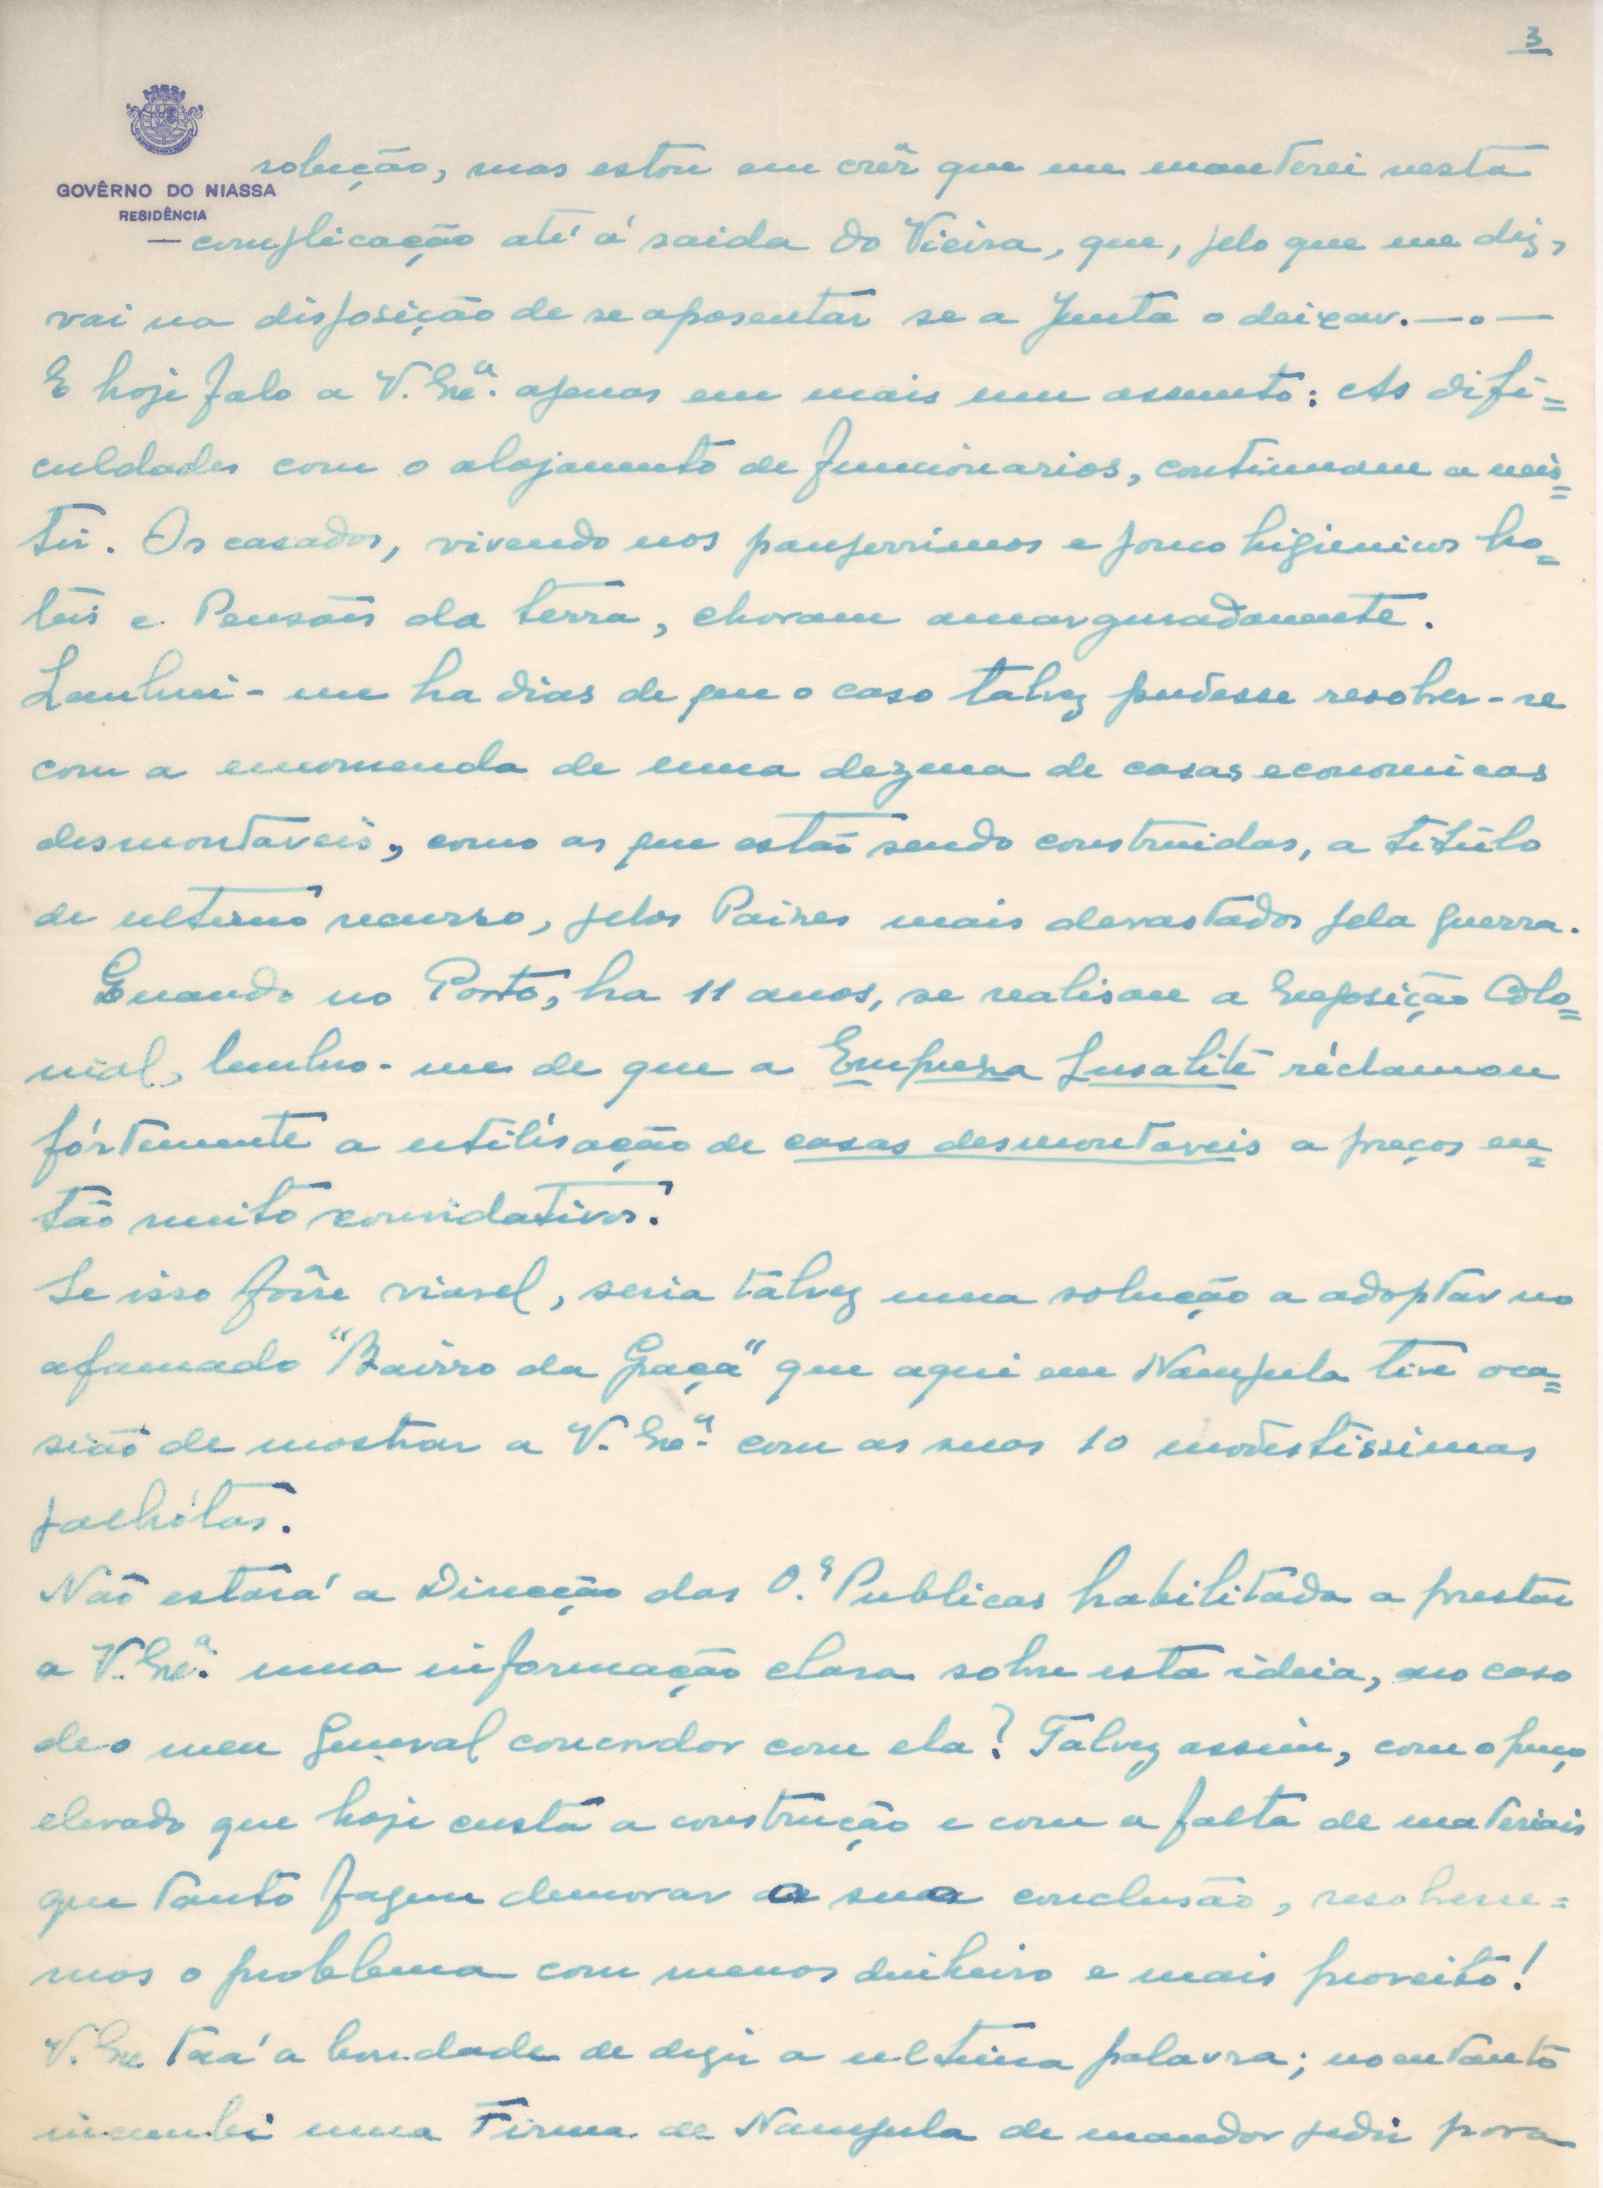 3
GOVÊRNO DO NIASSA
RESIDÊNCIA
solução, mas estou em crêr que me manterei nesta
— complicação até á saida do Vieira, que, pelo que me diz,
vai na disposição de se aposentar se a Junta o deixar. —.—
E hoje falo a V. Exª. apenas em mais um assunto: As difi=
culdades com o alojamento de funcionarios, continuam a exis=
tir. Os casados, vivendo nos paupérrimos e pouco higienicos ho=
teis e Pensões da terra, choram amarguradamente.
Lembrei-me ha dias de que o caso talvez pudesse resolver-se
com a encomenda de uma dezena de casas economicas
desmontaveis, como as que estão sendo construidas, a titulo
de ultimo recurso, pelos Paizes mais devastados pela guerra.
Quando no Porto, ha 11 anos, se realisou a Exposição Colo=
nial, lembro-me de que a Empresa Lusalite réclamou
fórtemente a utilisação de casas desmontaveis a preços en=
tão muito convidativos.
Se isso fôsse viavel, seria talvez uma solução a adoptar no
afamado "Bairro da Graça" que aqui em Nampula tive oca=
sião de mostrar a V. Exª. com as suas 10 modestissimas
palhótas.
Não estará a Direcção das O.s Publicas habilitada a prestar
a V. Exª. uma informação clara sobre esta ideia, no caso
de o meu General concordar com ela? Talvez assim, com o preço
elevado que hoje custa a construção e com a falta de materiais
que tanto fazem demorar a sua conclusão, resolvere=
mos o problema com menos dinheiro e mais proveito!
V. Exª. terá a bondade de dizer a ultima palavra; no entanto
incumbi uma Firma de Nampula de mandar pedir para